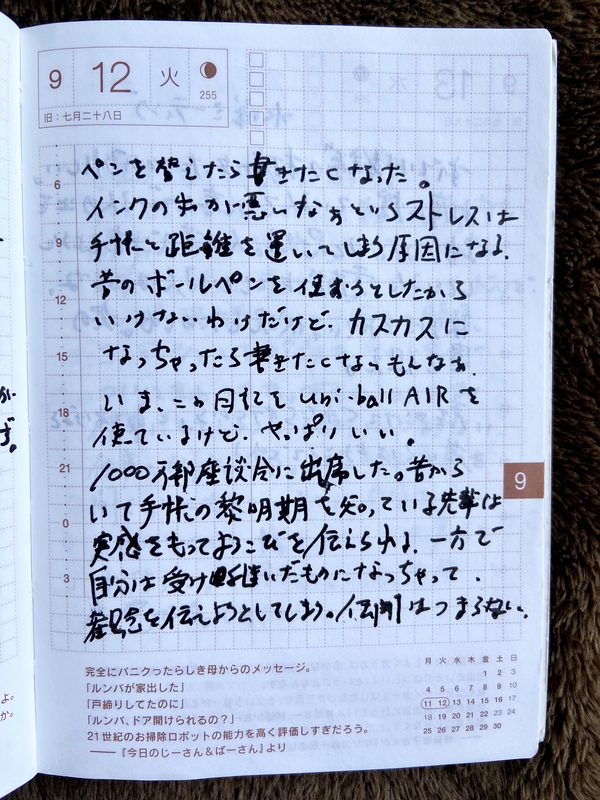 9 12 火
255
旧:七月二十八日
ペンを替えたら書きたくなった。
インクの出が悪いなあというストレスは
手帳と距離を置いてしまう原因になる。
昔のボールペンを使おうとしたから
いけないわけだけど、カスカスに
なっちゃったら書きたくないもんなあ。
いま、この日記を uni-ball AIR を
使ているけど、やっぱりいい。
1000万部座談会に出席した。昔から
いて手帳の黎明期を知っている先輩は
実感をもってよろこびを伝えられる。一方で
自分は受け継いだものになっちゃって、
を伝えようとしてしまう。伝聞はつまらない。
6
9
12
15
18
21
0
3
9
完全にパニクったらしき母からのメッセージ。
「ルンバが家出した」
「戸締りしてたのに」
「ルンバ、ドア開けられるの?」
21世紀のお掃除ロボットの能力を高く評価しすぎだろう。
――『今日のじーさん&ばーさん』より
月 火 水 木 金 土 日
1 2 3
4 5 6 7 8 9 10
11 12 13 14 15 16 17
18 19 20 21 22 23 24
25 26 27 28 29 30